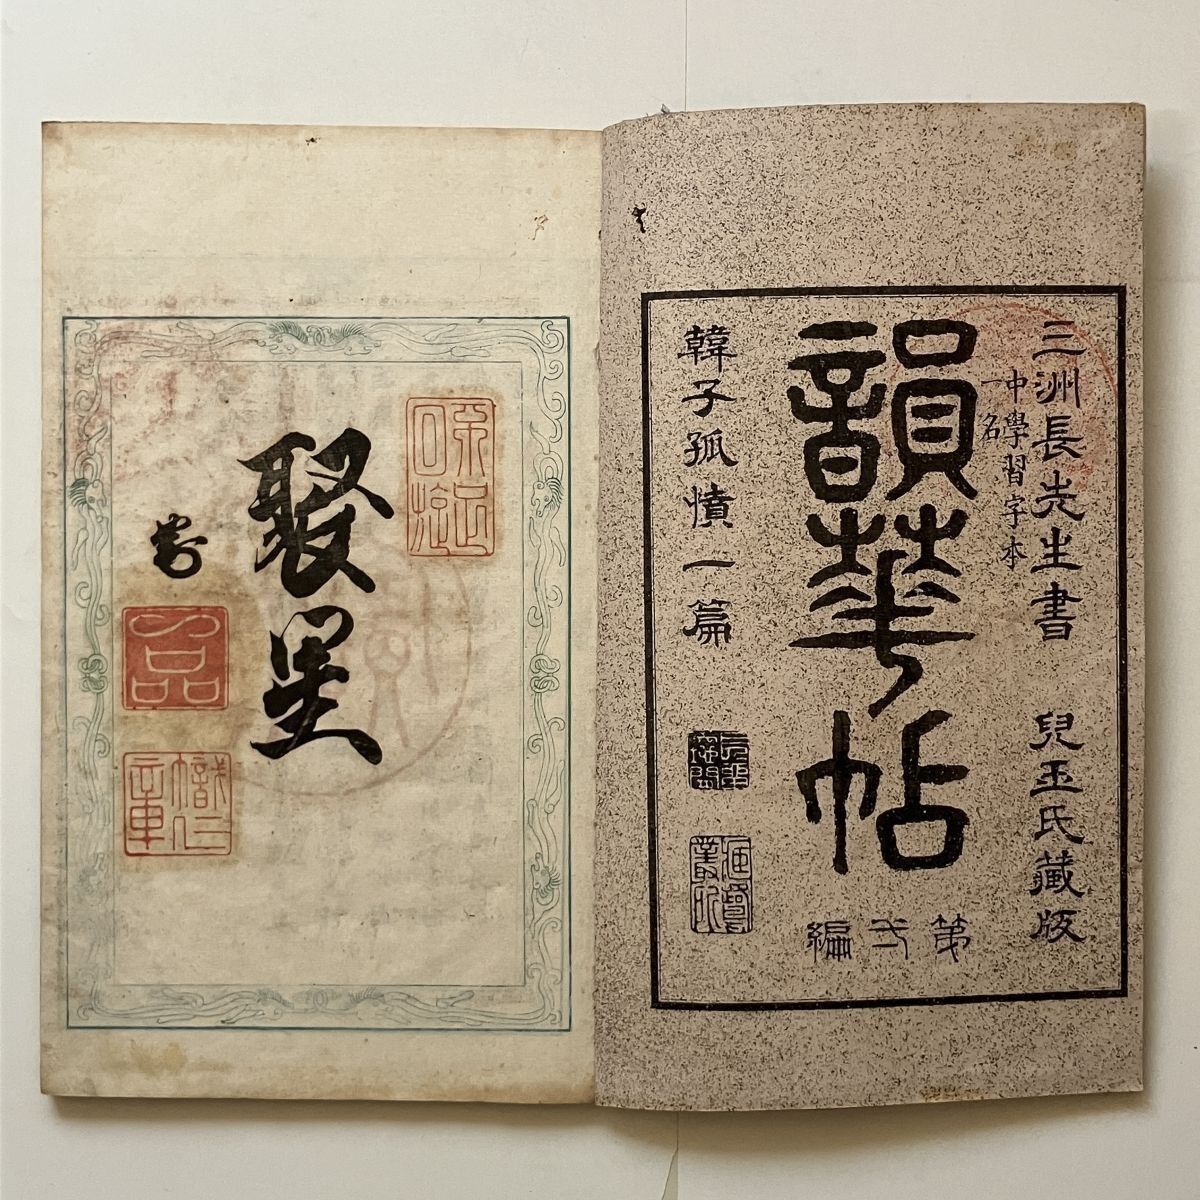 三洲長先生書　兒玉氏藏版
一名
中學習字本
韻華帖
第弍編
韓子孤憤一篇
聚星
一品
幟仁章